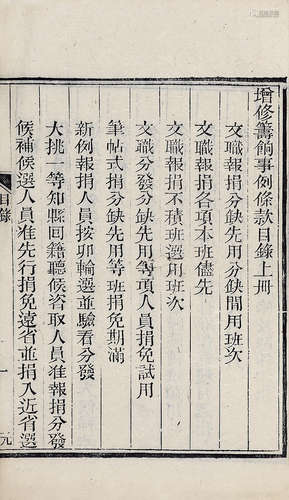 增修籌餉事例條款目錄上冊
文職報捐分缺先用分缺間用班次
文職報捐各項本班儘先
文職報捐不積班選用班次
文職分發分缺先用等項人員捐免試用
筆帖式捐分缺先用等班捐免期滿
新例報捐人員按卯輪選並驗看分發
大挑一等知縣回籍聽候咨取人員准報捐分發
候補候選人員准先行捐免遠省並捐入近省選
目錄
一